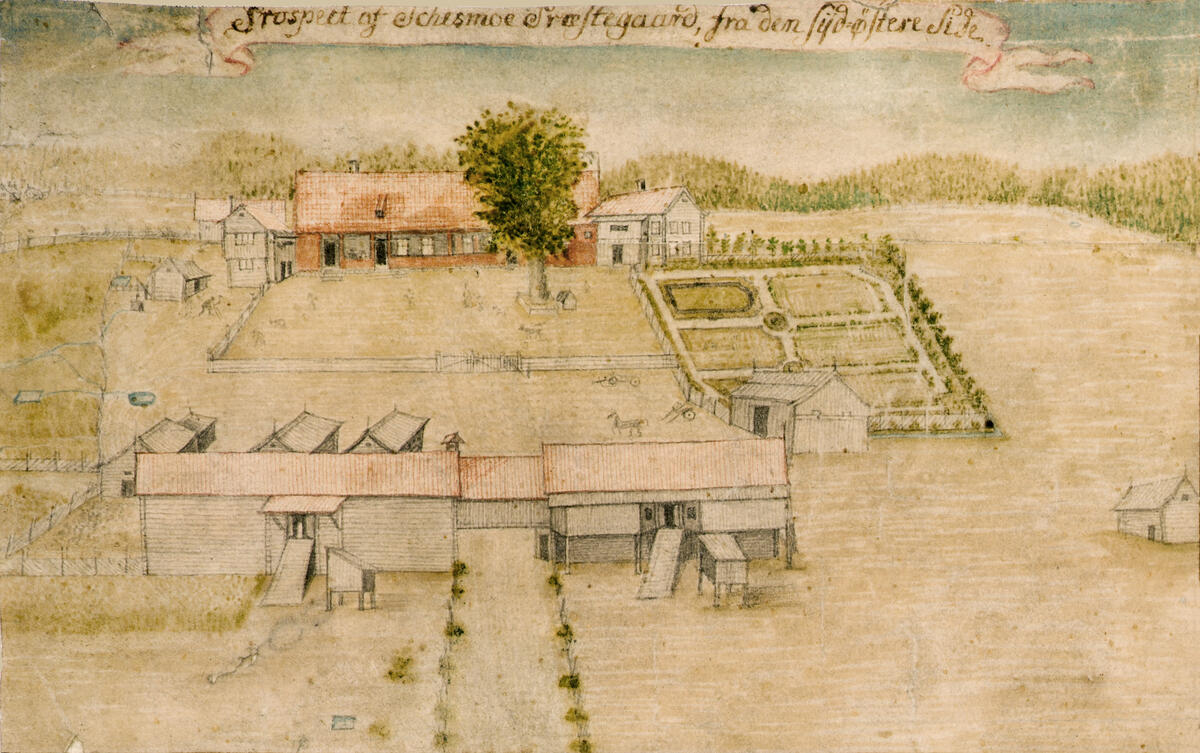 Prospect af Schesmoe Præstegaard, fra den syd-östere Side.